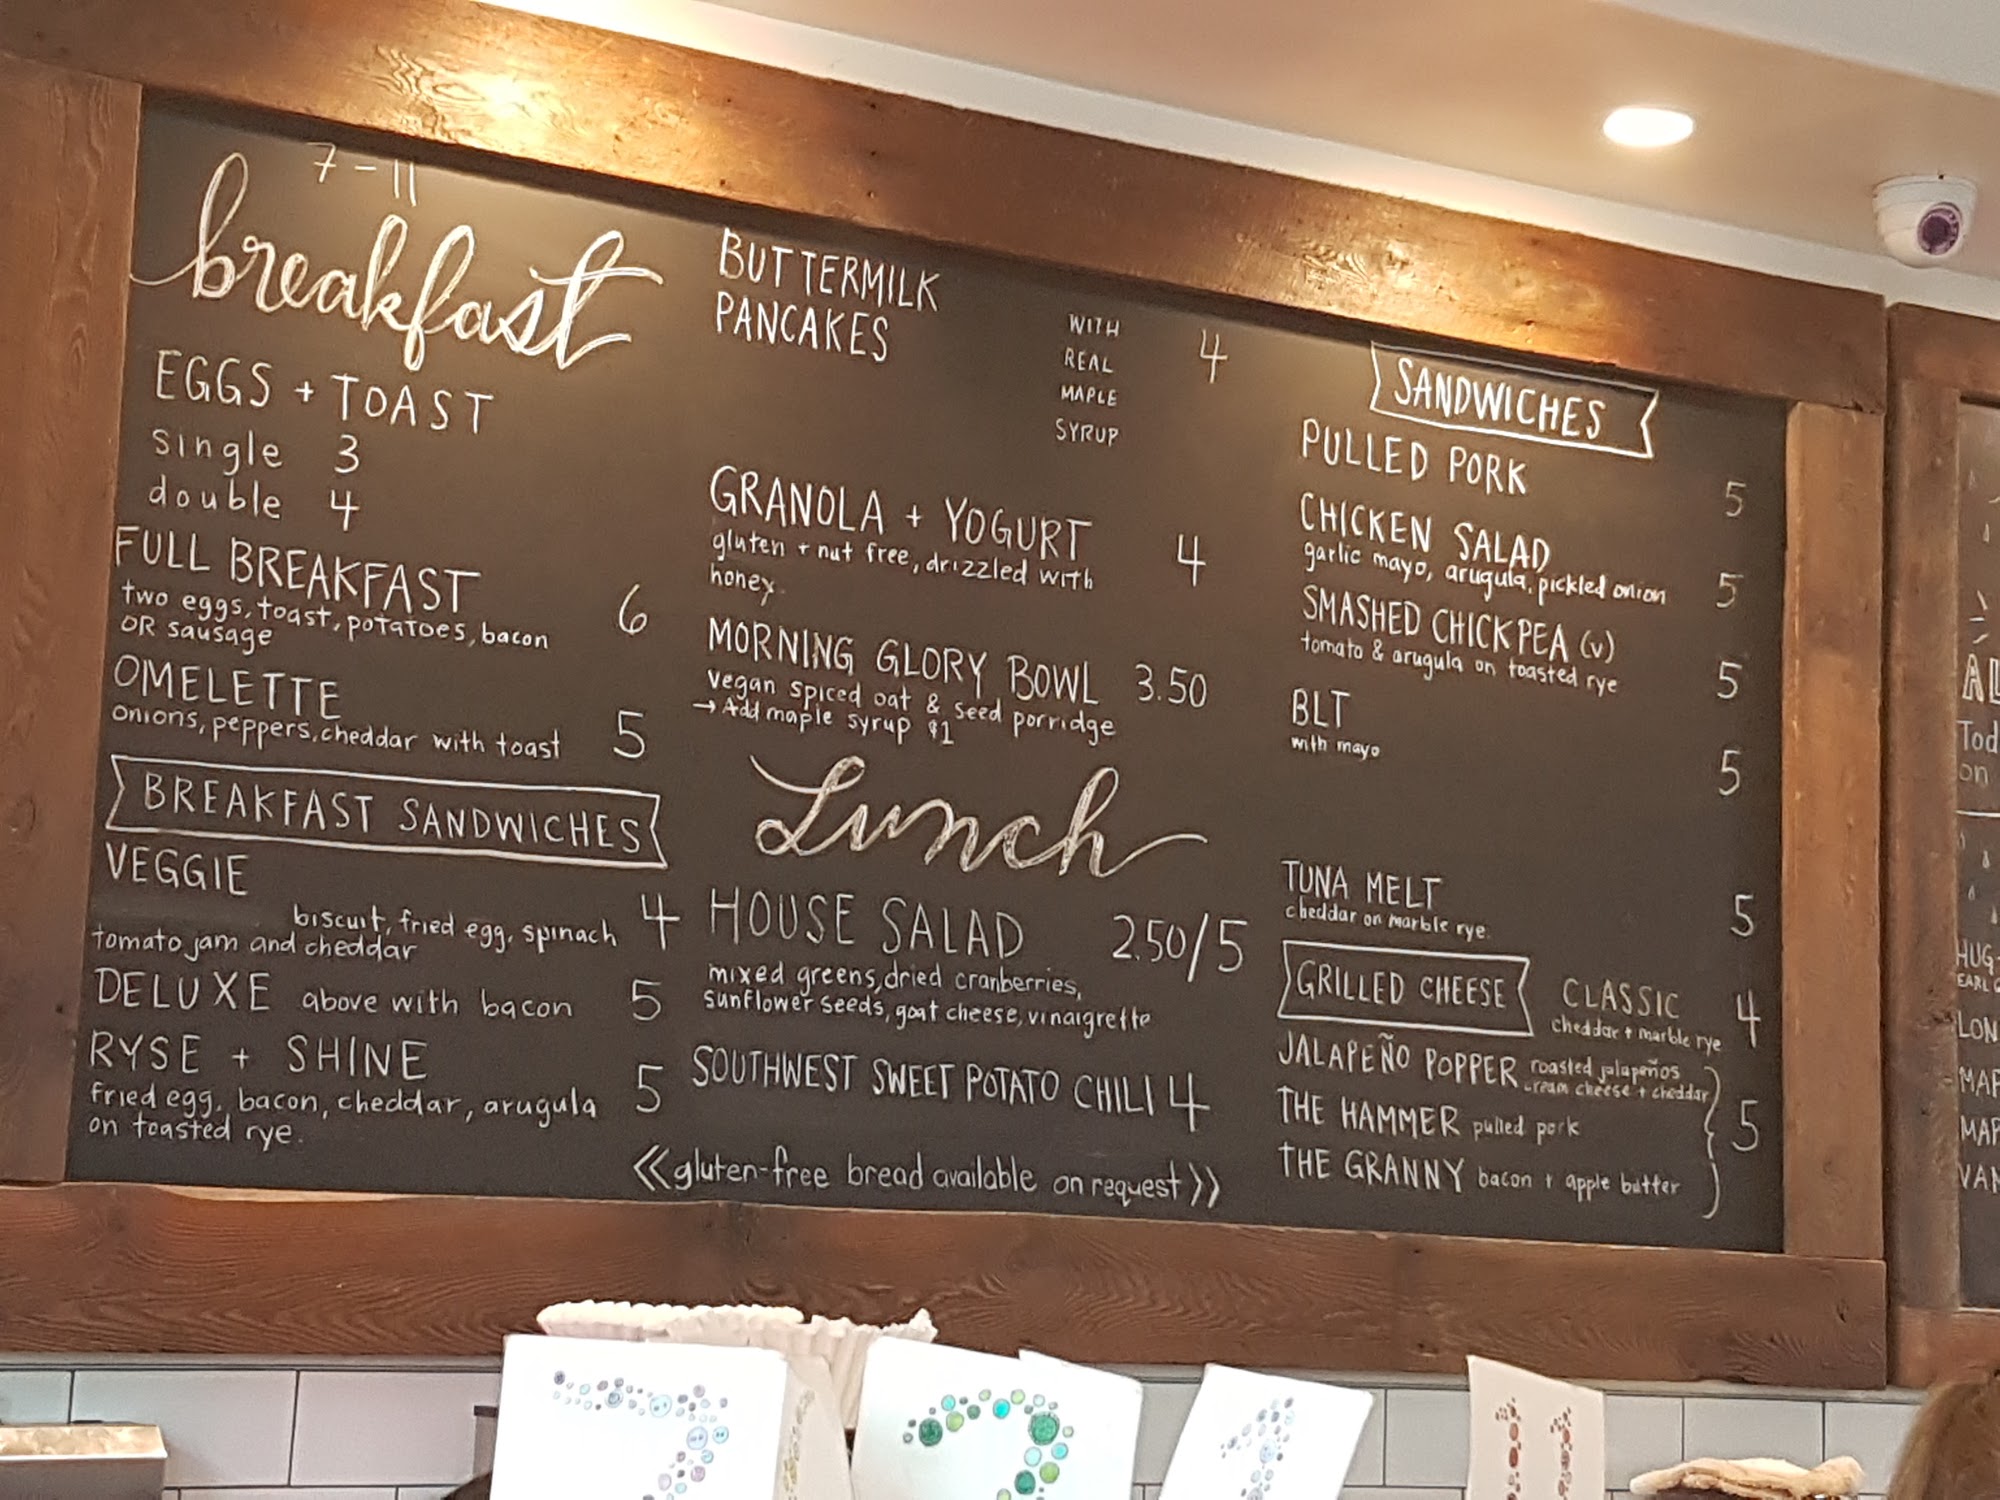 7-11
breakfast
EGGS + TOAST
single 3
double 4
FULL BREAKFAST
two eggs, toast, potatoes, bacon 6
OR sausage
OMELETTE
onions, peppers, cheddar with toast 5
BREAKFAST SANDWICHES
VEGGIE
biscuit, fried egg, spinach 4
tomato jam and cheddar
DELUXE above with bacon 5
RYSE + SHINE
fried egg, bacon, cheddar, arugula 5
on toasted rye.
BUTTERMILK
PANCAKES
WITH
REAL
MAPLE
SYRUP
4
GRANOLA + YOGURT
gluten + nut free, drizzled with 4
honey.
MORNING GLORY BOWL 3.50
vegan spiced oat & seed porridge
→ Add maple syrup $1
Lunch
HOUSE SALAD 2.50/5
mixed greens, dried cranberries,
sunflower seeds, goat cheese, vinaigrette
SOUTHWEST SWEET POTATO CHILI 4
<<gluten-free bread available on request>>
SANDWICHES
PULLED PORK 5
CHICKEN SALAD
garlic mayo, arugula, pickled onion 5
SMASHED CHICKPEA (v)
tomato & arugula on toasted rye 5
BLT
with mayo 5
TUNA MELT
cheddar on marble rye. 5
GRILLED CHEESE
CLASSIC 4
cheddar + marble rye
JALAPEÑO POPPER roasted jalapeños
cream cheese + cheddar
THE HAMMER pulled pork 5
THE GRANNY bacon + apple butter
on
HUG